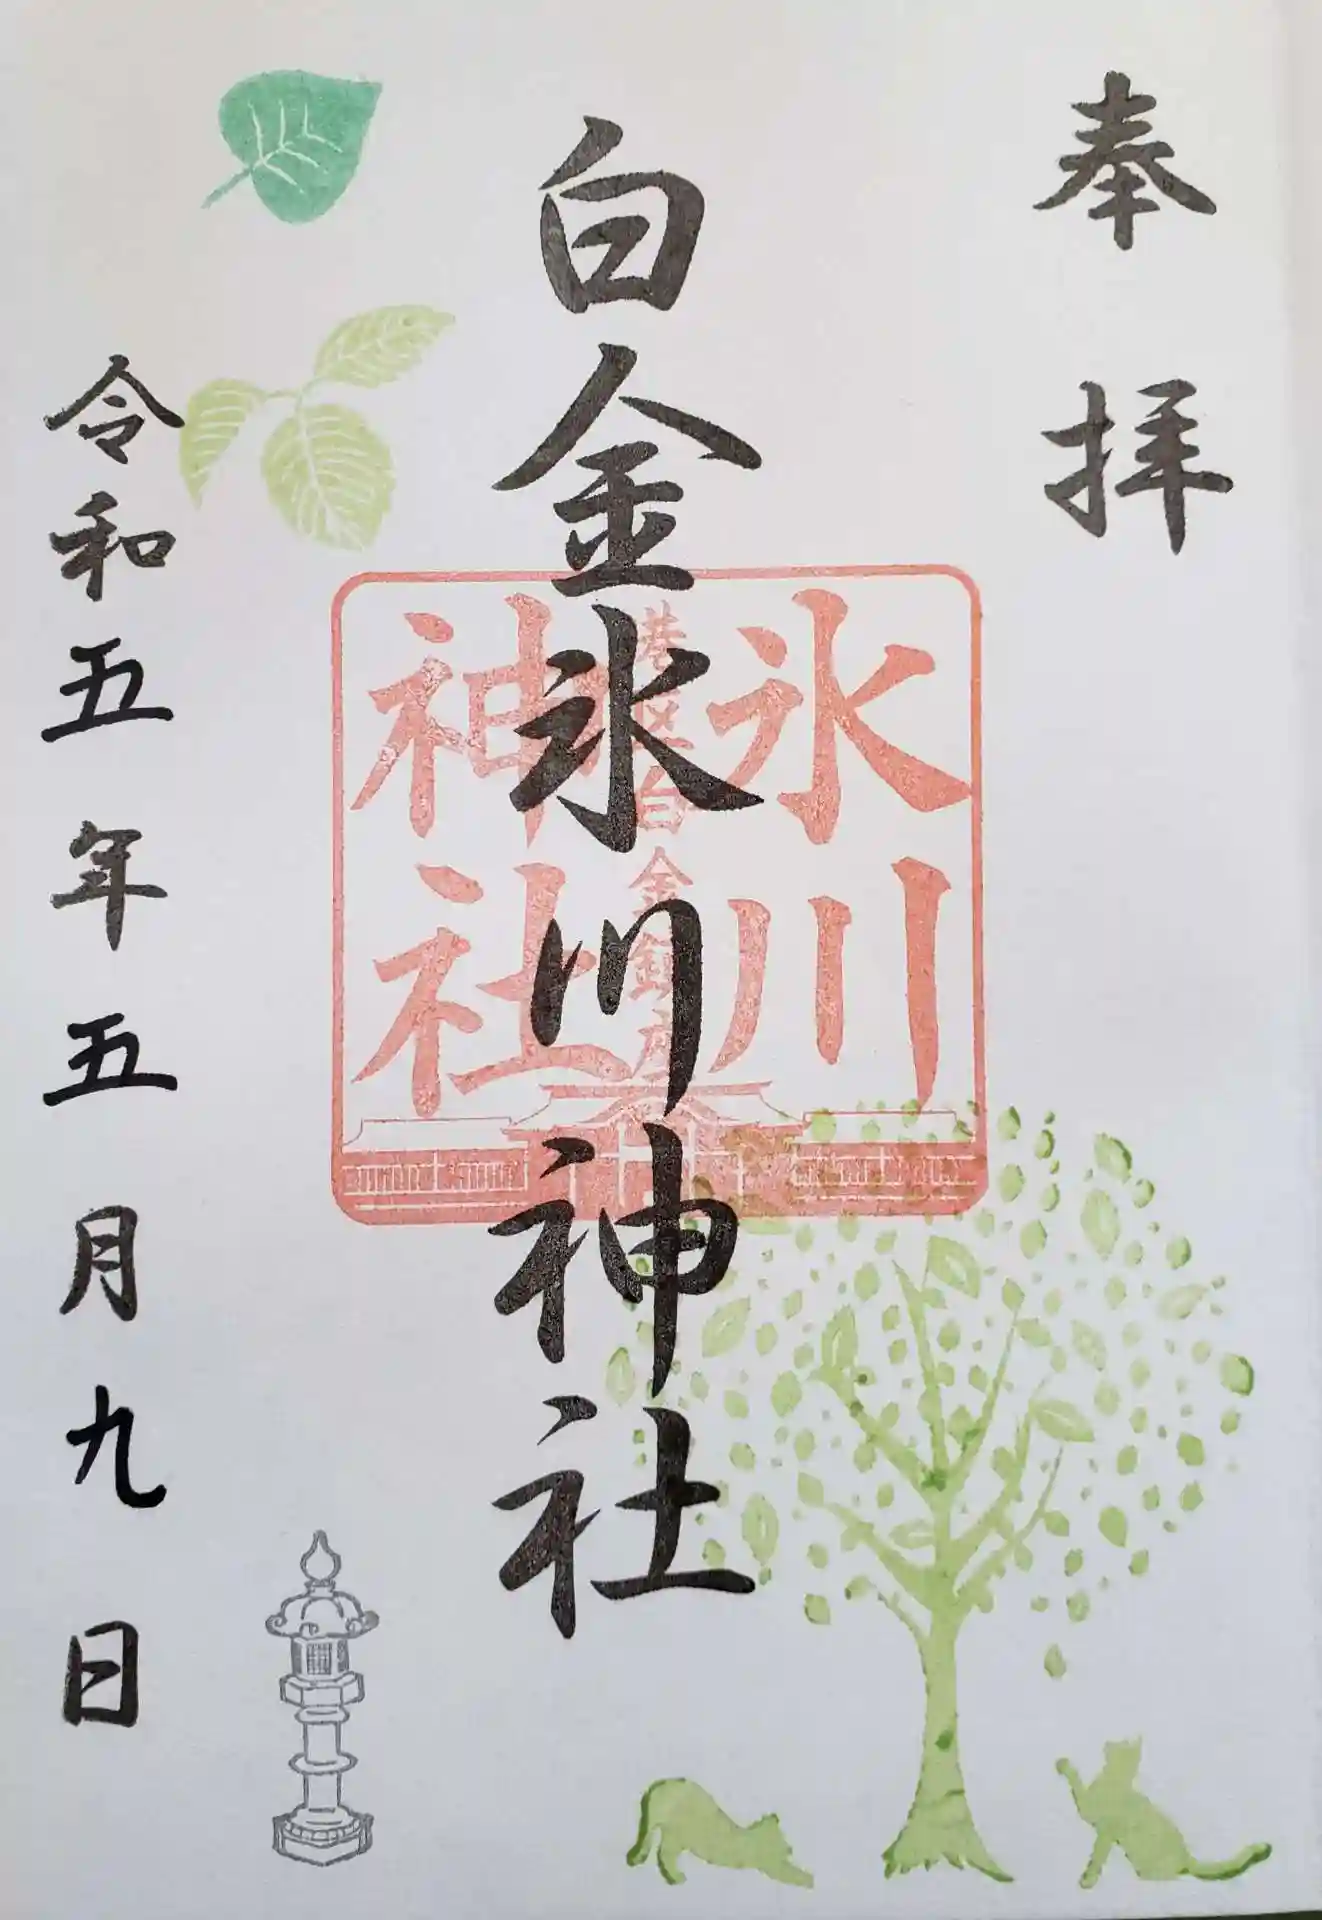 奉拝
氷川
港区白金鎮座
神社
白金氷川神社
令和五年五月九日